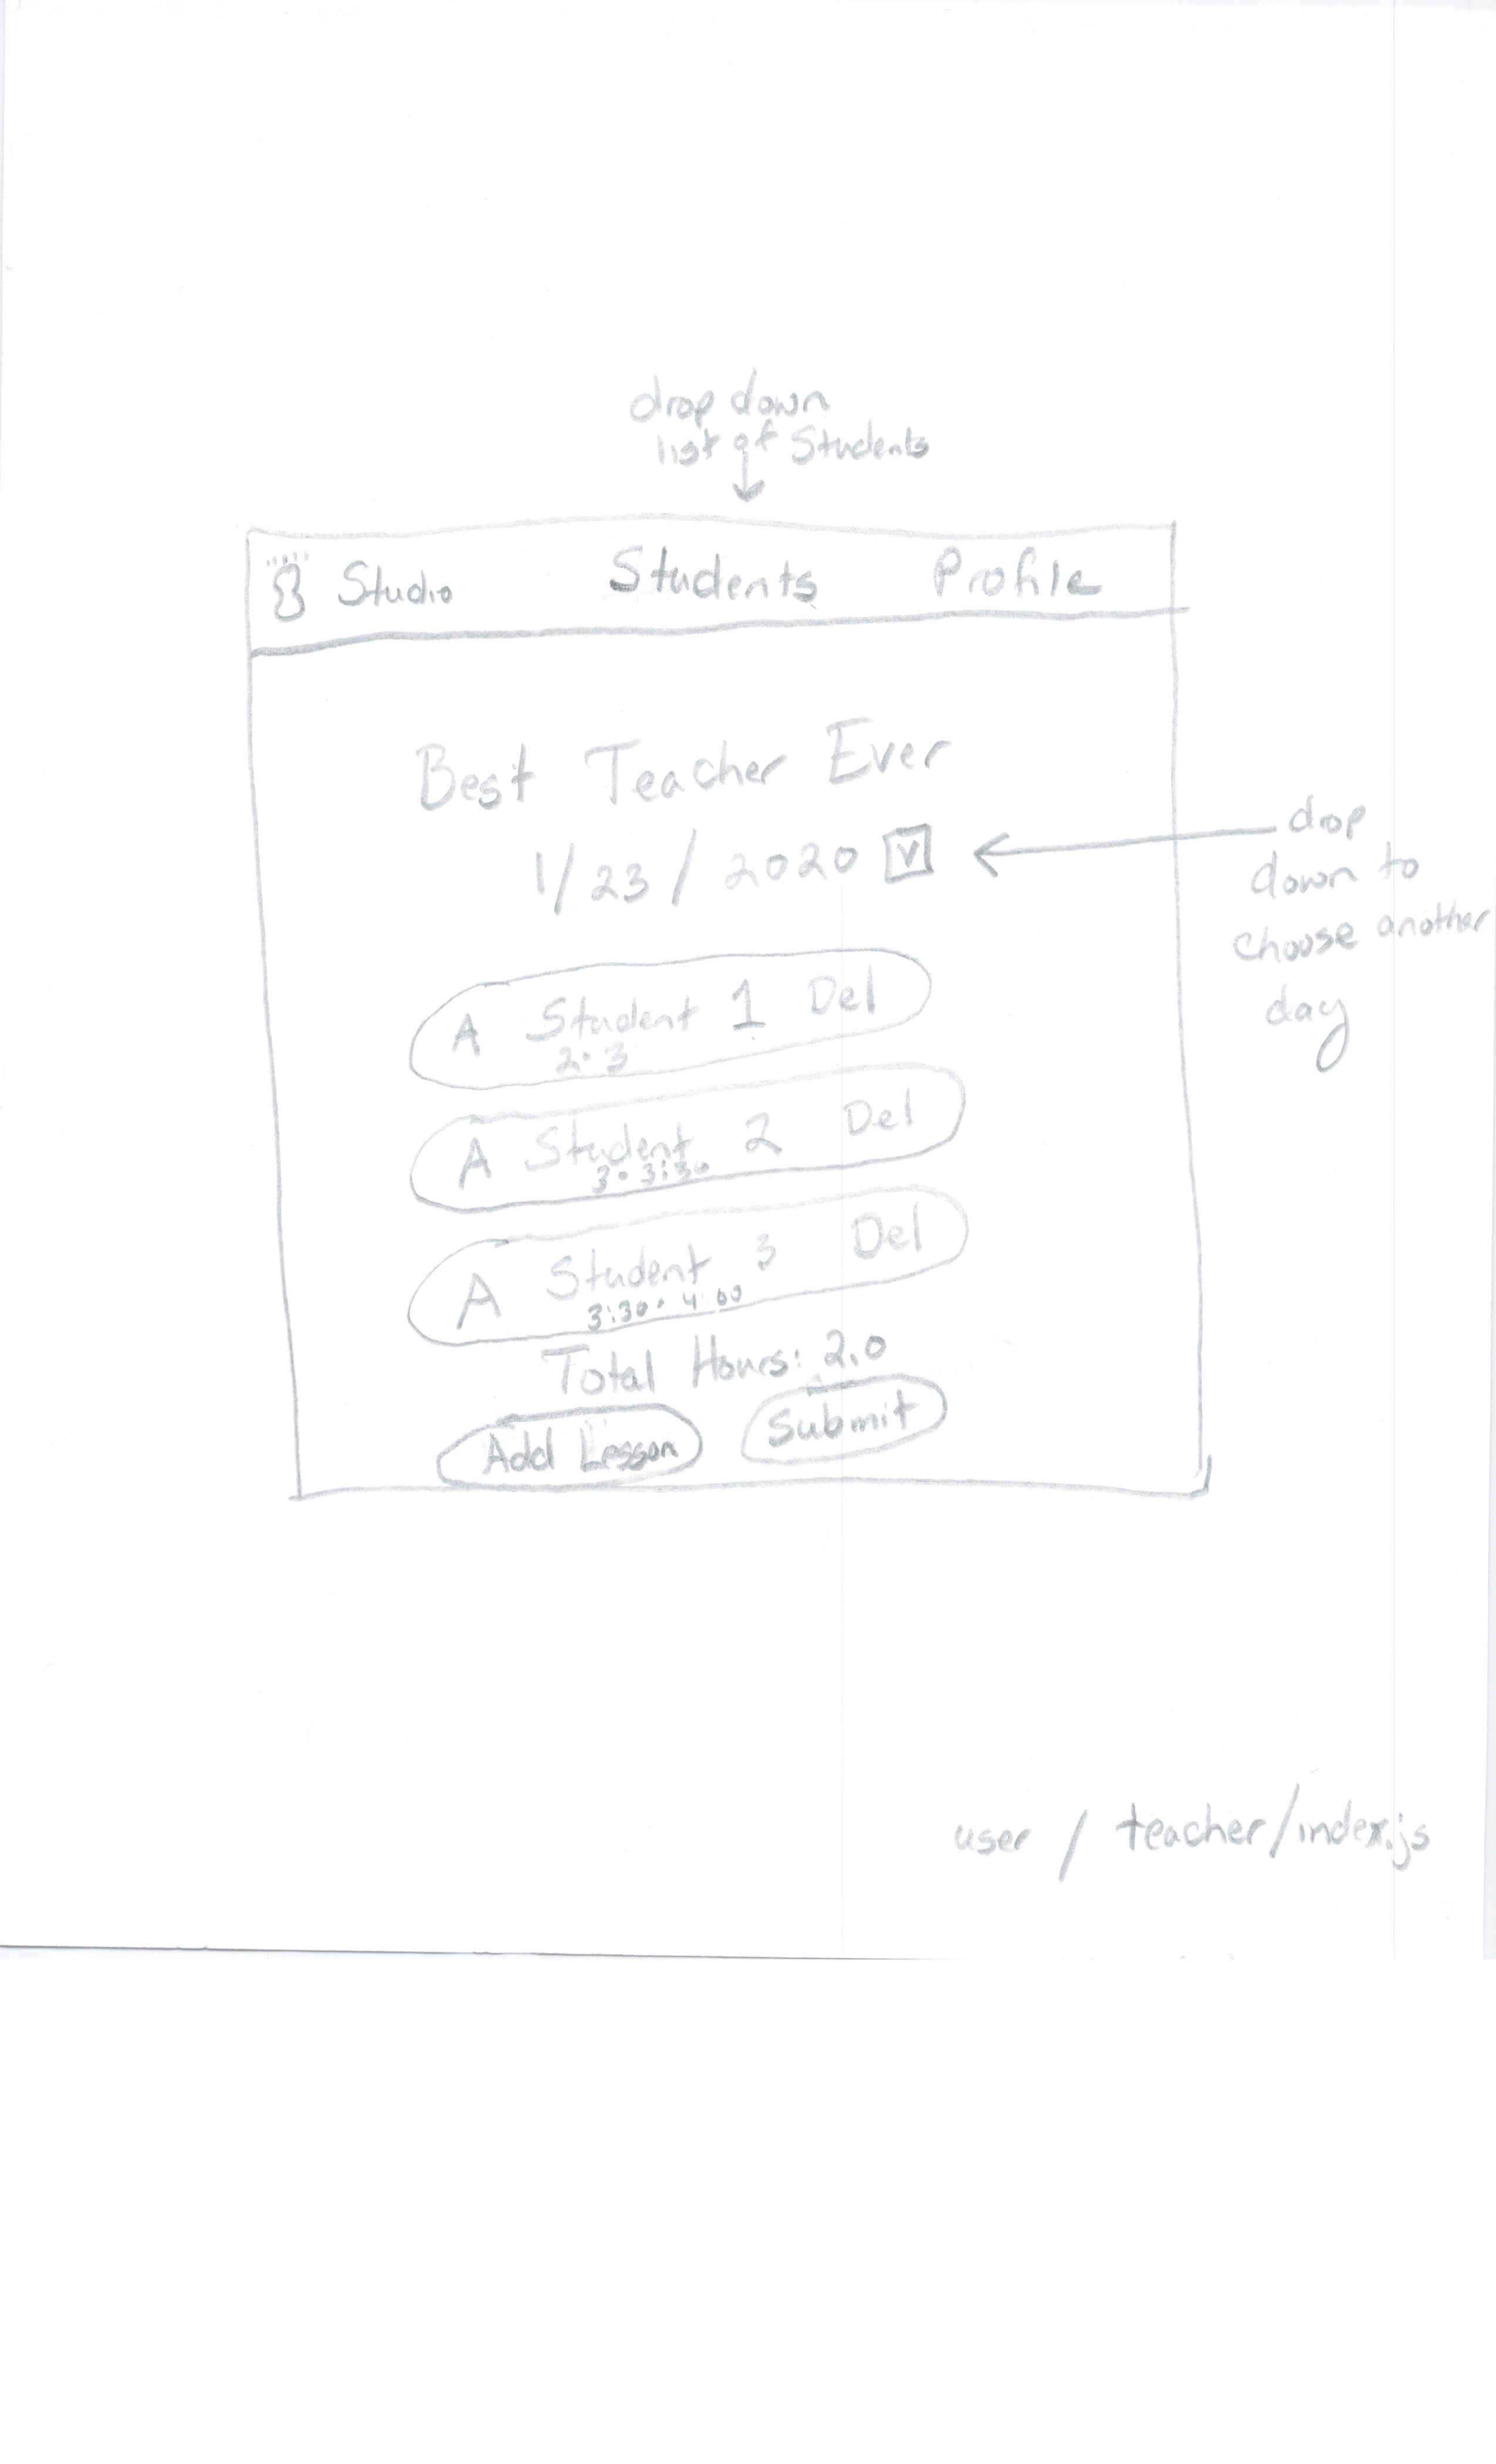 drop down
list of Students
Studio Students Profile
Best Teacher Ever
1/23/2020 V
drop
down to
choose another
day
A Student 1 Del
2-3
A Student 2 Del
3-3:30
A Student 3 Del
3:30-4:00
Total Hours: 2.0
Add Lesson Submit
user / teacher/index.js